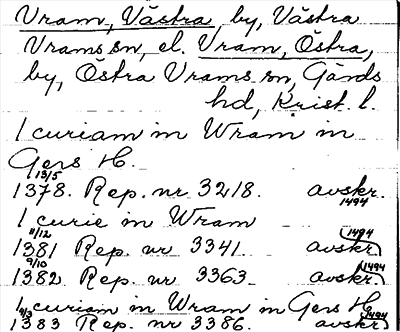 Vram, Västra by, Västra
Vrams sn, el. Vram, Östra,
by, Östra Vrams sn, Gärds
hd, Krist. l.
1 curiam in Wram in
Gers H.
13/5
1378. Rep. nr 3218. avskr. 1494
1 curie in Wram
11/12
1381 Rep. nr 3341. avskr. (1494)
9/10
1382 Rep. nr 3363. avskr. (1494)
1 curiam in Wram in Gers H.
9/3
1383 Rep. nr 3386. avskr. (1494)